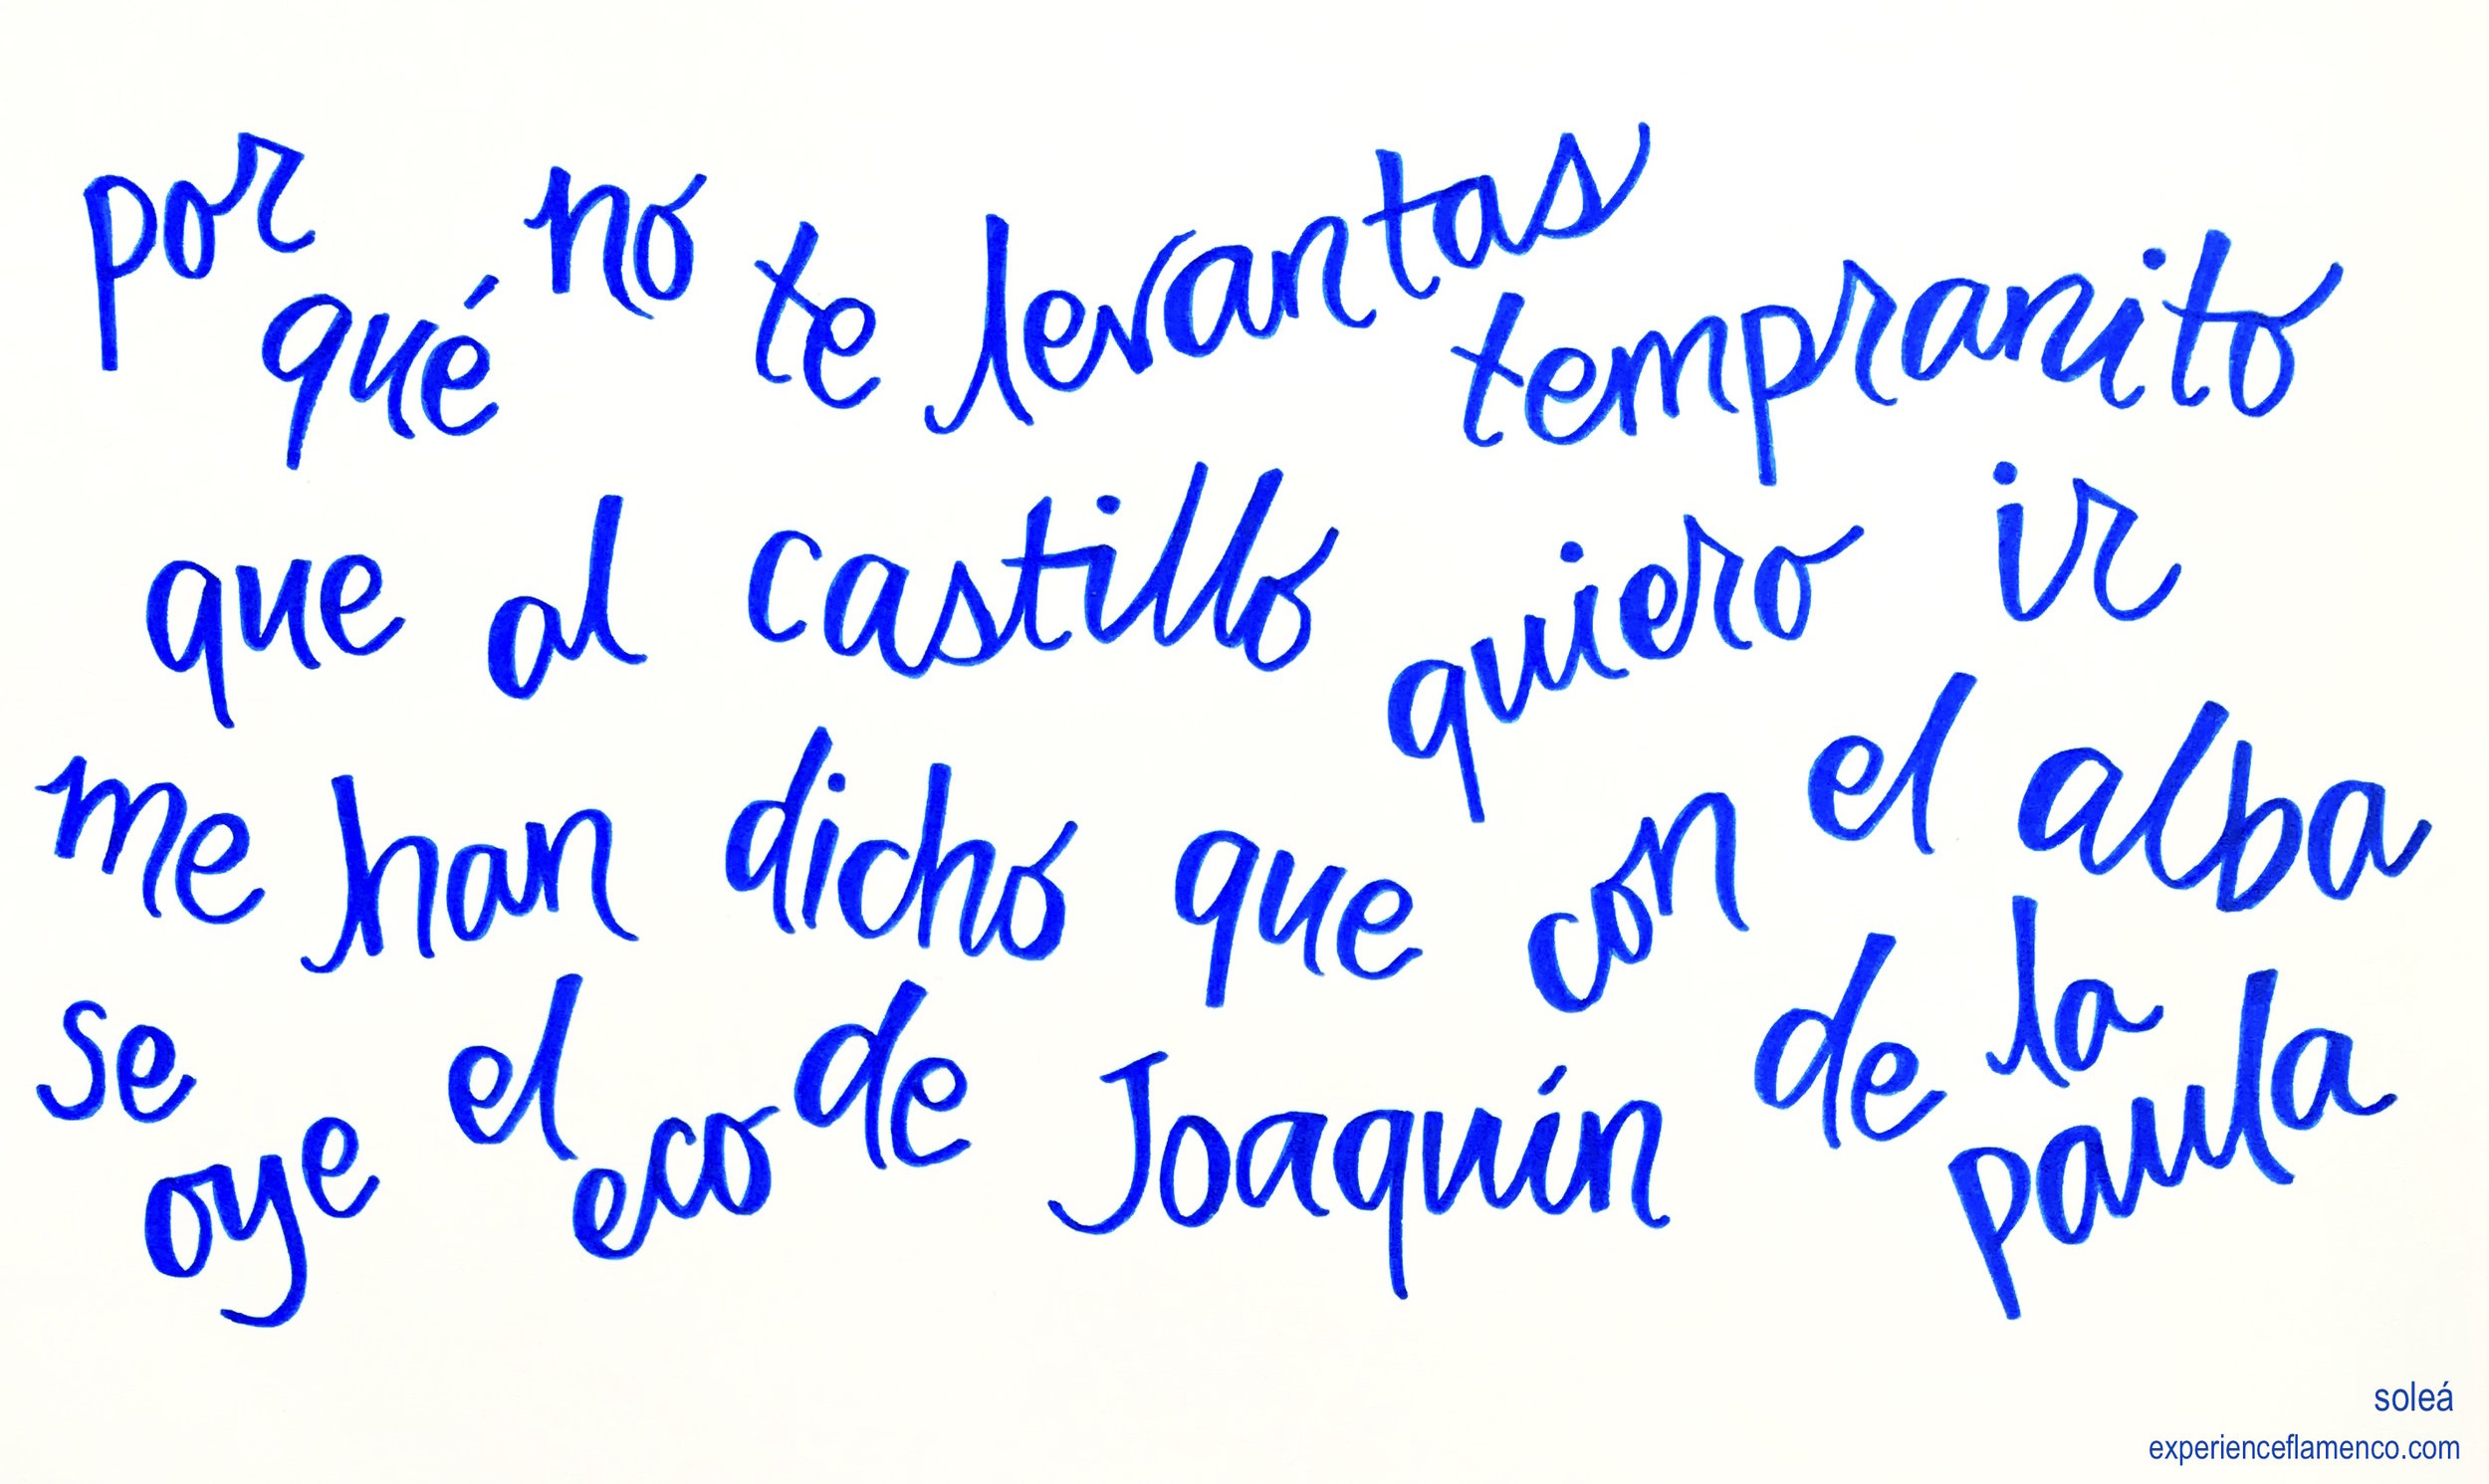 por qué no te levantas tempranito
que al castillo quiero ir
me han dicho que con el alba
se oye el eco de Joaquín de la paula
soleá
experienceflamenco.com